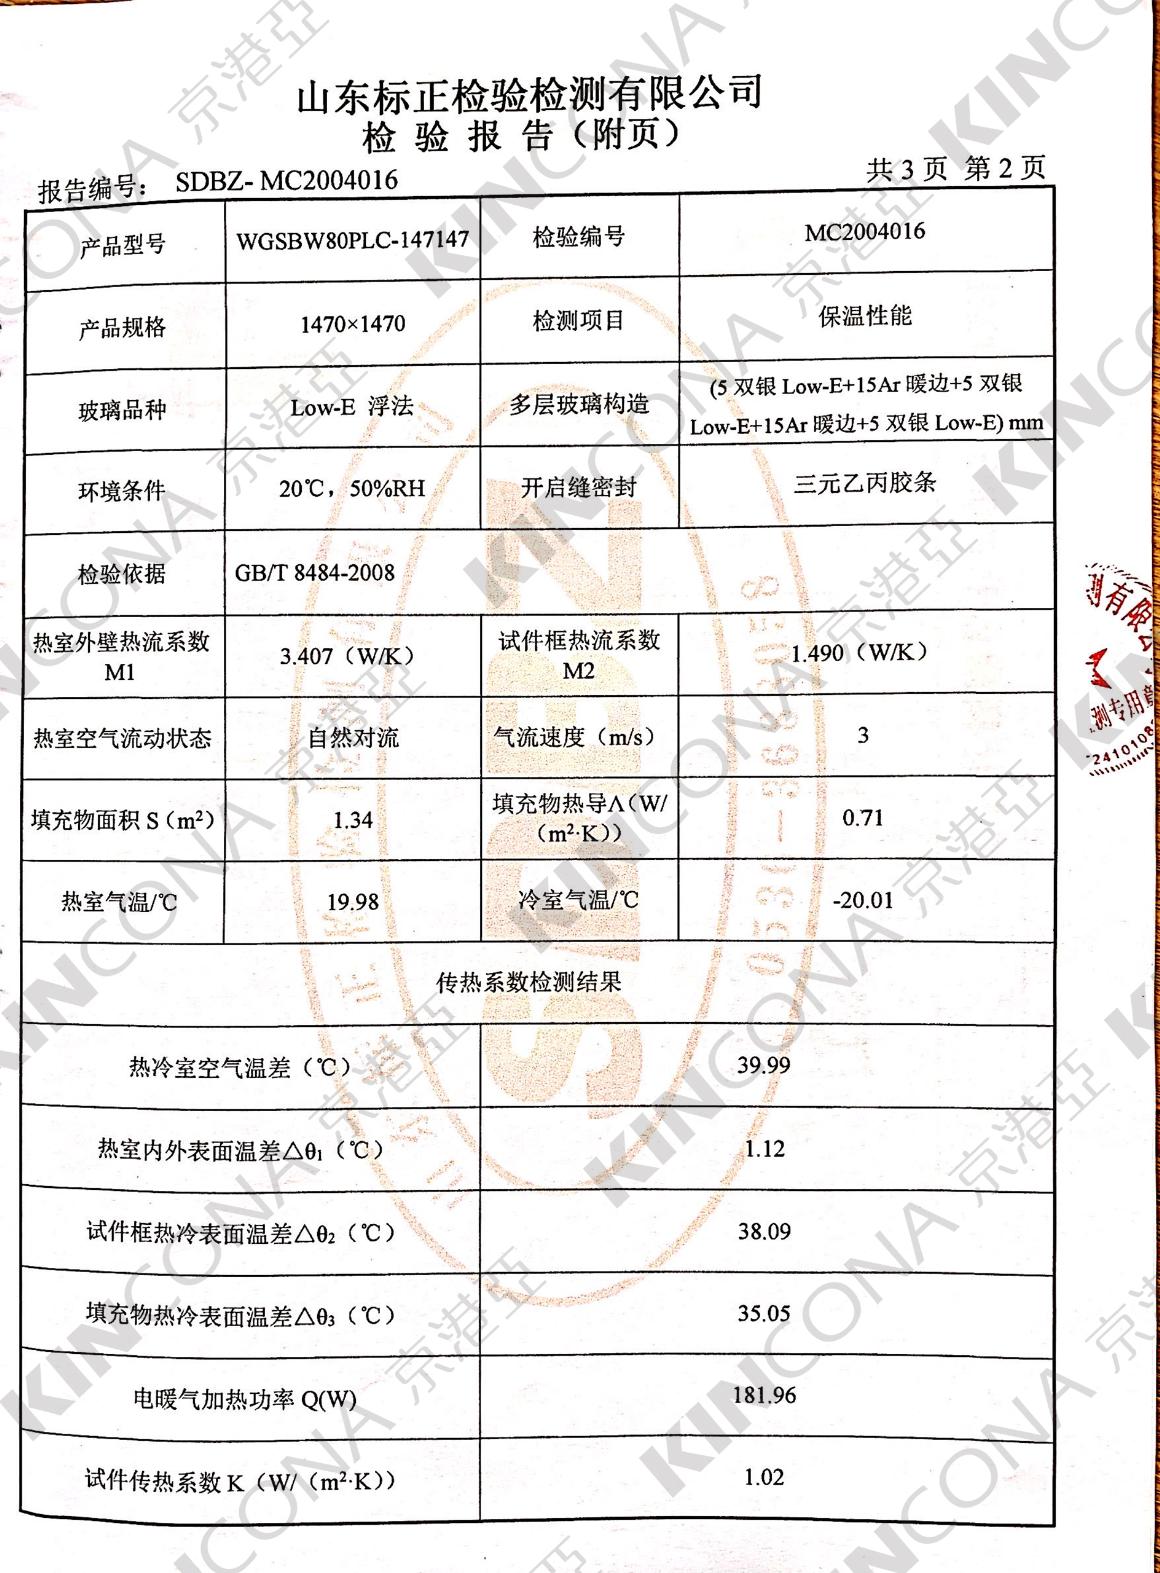 山东标正检验检测有限公司
检 验 报 告（附页）
报告编号： SDBZ- MC2004016
共 3 页 第 2 页
产品型号
WGSBW80PLC-147147
检验编号
MC2004016
产品规格
1470×1470
检测项目
保温性能
玻璃品种
Low-E 浮法
多层玻璃构造
(5 双银 Low-E+15Ar 暖边+5 双银
Low-E+15Ar 暖边+5 双银 Low-E) mm
环境条件
20℃，50%RH
开启缝密封
三元乙丙胶条
检验依据
GB/T 8484-2008
热室外壁热流系数
M1
3.407（W/K）
试件框热流系数
M2
1.490（W/K）
热室空气流动状态
自然对流
气流速度（m/s）
3
填充物面积 S（m²）
1.34
填充物热导Λ（W/
（m²·K））
0.71
热室气温/℃
19.98
冷室气温/℃
-20.01
传热系数检测结果
热冷室空气温差（℃）
39.99
热室内外表面温差△θ₁（℃）
1.12
试件框热冷表面温差△θ₂（℃）
38.09
填充物热冷表面温差△θ₃（℃）
35.05
电暖气加热功率 Q(W)
181.96
试件传热系数 K（W/（m²·K））
1.02
KINCONA 京港亞
SDBZ
测有限
测专用章